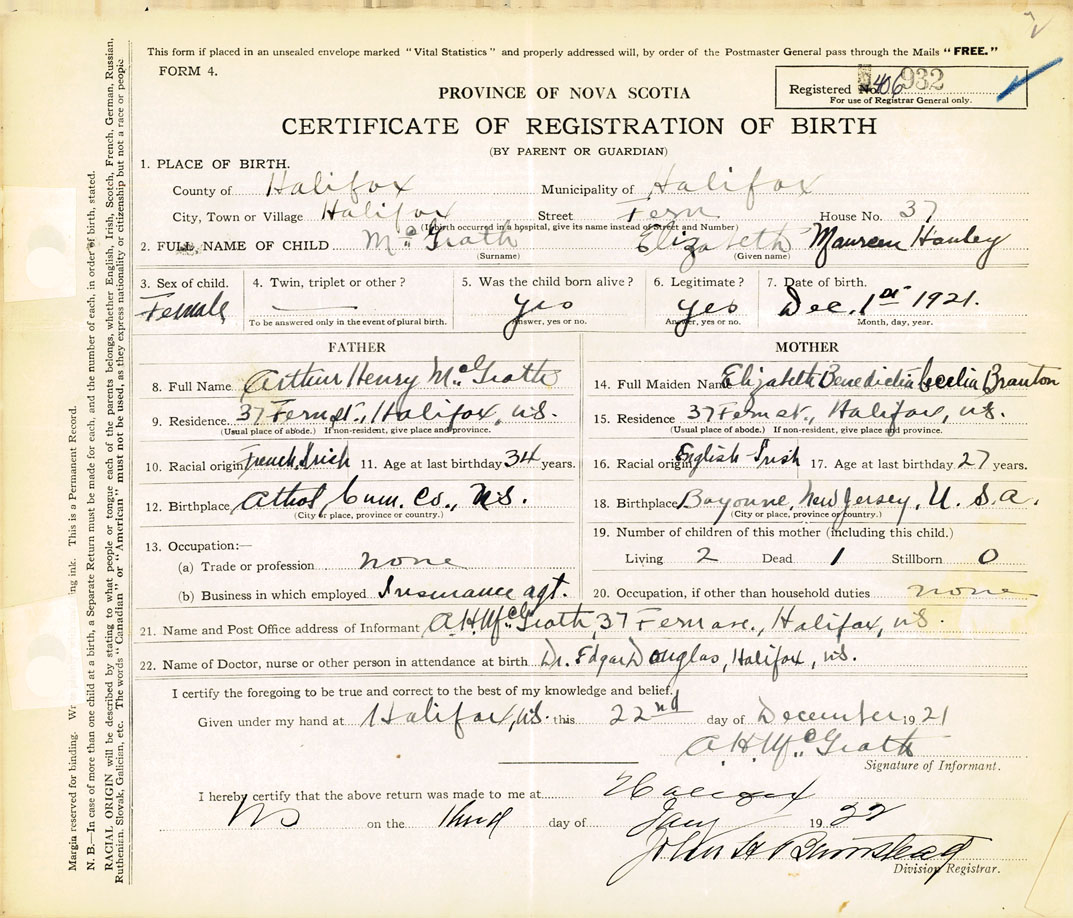 This form if placed in an unsealed envelope marked "Vital Statistics" and properly addressed will, by order of the Postmaster General pass through the Mails "FREE."
FORM 4.
Registered No. 406 932
For use of Registrar General only.
PROVINCE OF NOVA SCOTIA
CERTIFICATE OF REGISTRATION OF BIRTH
(BY PARENT OR GUARDIAN)
1. PLACE OF BIRTH.
County of Halifax Municipality of Halifax
City, Town or Village Halifax Street Fern House No. 37
(If birth occurred in a hospital, give its name instead of Street and Number)
2. FULL NAME OF CHILD McGrath Elizabeth Maureen Hanley
(Surname) (Given name)
3. Sex of child. 4. Twin, triplet or other? 5. Was the child born alive? 6. Legitimate? 7. Date of birth.
Female — yes yes Dec. 1st 1921.
To be answered only in the event of plural birth. Answer, yes or no. Answer, yes or no. Month, day, year.
FATHER
8. Full Name Arthur Henry McGrath
9. Residence 37 Fern st., Halifax, N.S.
(Usual place of abode.) If non-resident, give place and province.
10. Racial origin French, Irish 11. Age at last birthday 34 years.
12. Birthplace Athol Cum. Co., N.S.
(City or place, province or country.)
13. Occupation:—
(a) Trade or profession none
(b) Business in which employed Insurance agt.
MOTHER
14. Full Maiden Name Elizabeth Benedicta Cecelia
15. Residence 37 Fern st., Halifax, N.S.
(Usual place of abode.) If non-resident, give place and province.
16. Racial origin English Irish 17. Age at last birthday 27 years.
18. Birthplace Bayonne, New Jersey, U.S.A.
(City or place, province or country.)
19. Number of children of this mother (including this child.)
Living 2 Dead 1 Stillborn 0
20. Occupation, if other than household duties none
21. Name and Post Office address of Informant A.H. McGrath, 37 Fern ave., Halifax, N.S.
22. Name of Doctor, nurse or other person in attendance at birth Dr. Edgar Douglas, Halifax, N.S.
I certify the foregoing to be true and correct to the best of my knowledge and belief.
Given under my hand at Halifax, N.S. this 22nd day of December 1921
A.H. McGrath
Signature of Informant.
I hereby certify that the above return was made to me at Halifax
NS on the Third day of Jany 1922
John H Barnstead
Division Registrar.
Margin reserved for binding. ing ink. This is a Permanent Record.
N. B.—In case of more than one child at a birth, a Separate Return must be made for each, and the number of each, in order of birth, stated.
RACIAL ORIGIN will be described by stating to what people or tongue each of the parents belongs, whether English, Irish, Scotch, French, German, Russian,
Ruthenian, Slovak, Galician, etc. The words "Canadian" or "American" must not be used, as they express nationality or citizenship but not a race or people